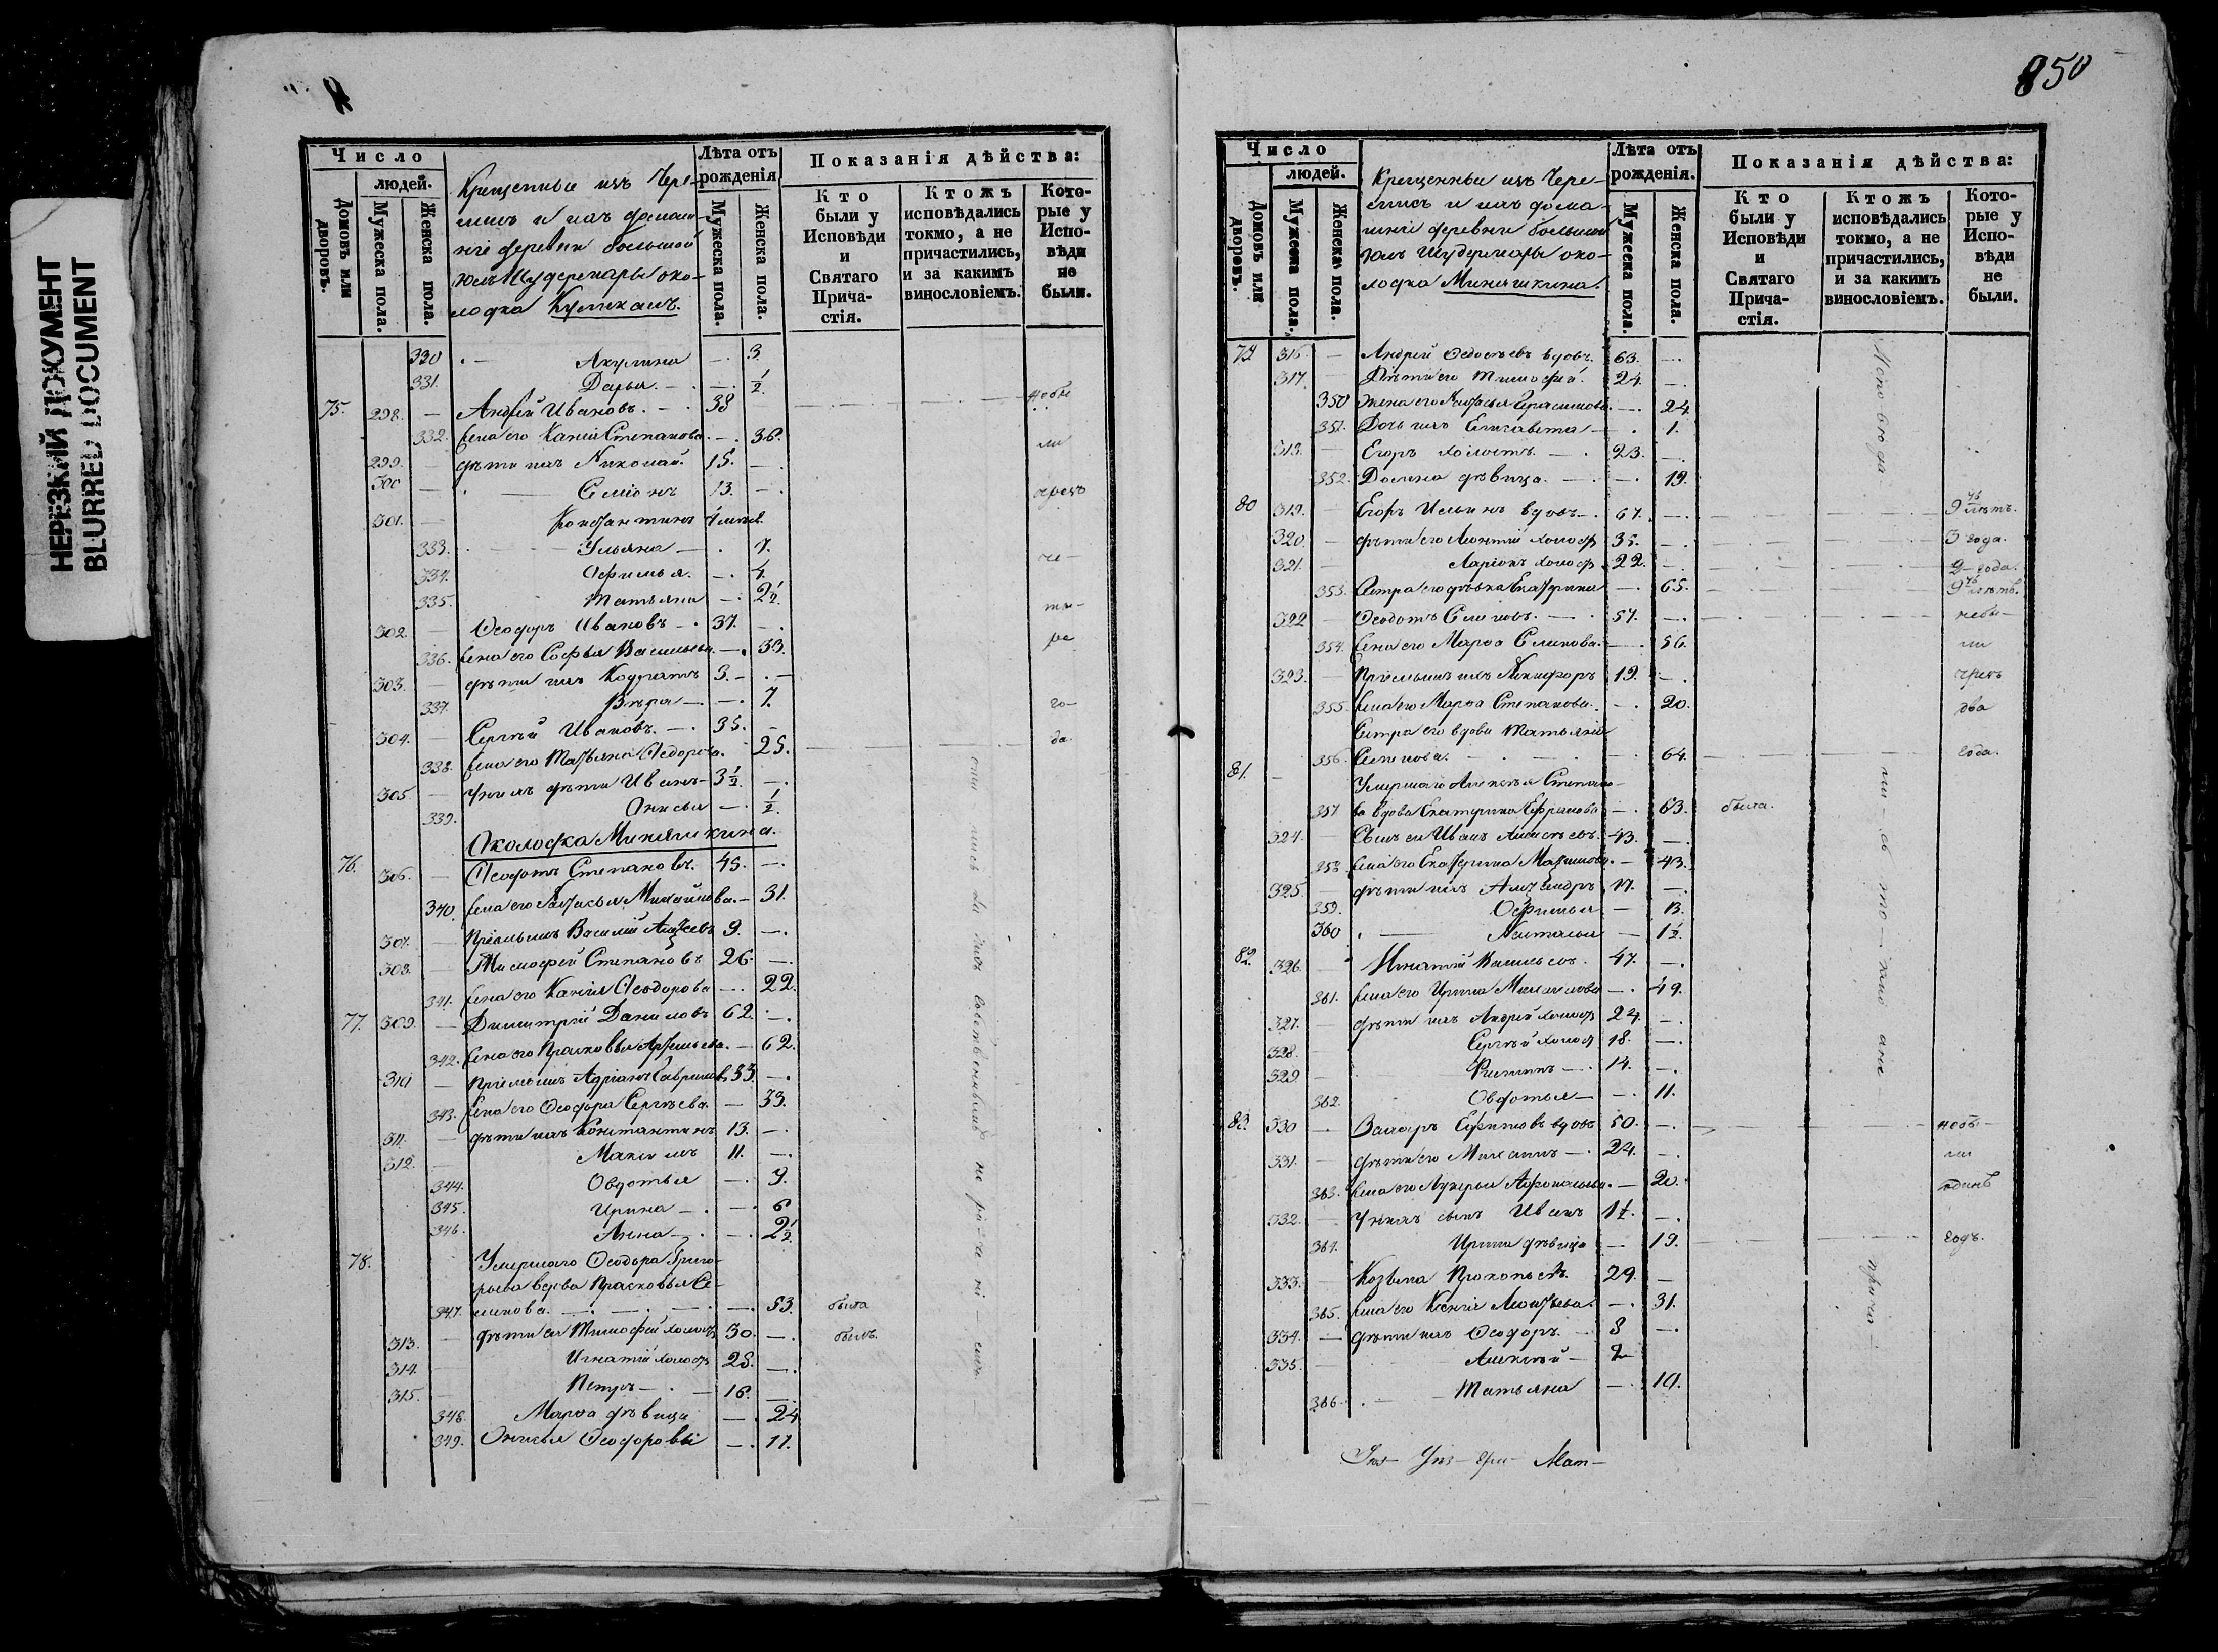 НЕРЕЗКИЙ ДОКУМЕНТ
BLURRED DOCUMENT
Число
людей.
Домовъ или дворовъ.
Мужеска пола.
Женска пола.
Крещенные изъ Чере-
мисъ и ихъ домаш-
ніе деревни Большой
околодка
Лѣта отъ рожденія
Мужеска пола.
Женска пола.
Показанія дѣйства:
Кто были у Исповѣди и Святаго Прича-стія.
Ктожъ исповѣдались токмо, а не причастились, и за какимъ винословіемъ.
Кото-рые у Испо-вѣди не были.
330 Акулина — 3.
331. Дарья. — ½
75. 298. — Андрей Ивановъ. — 38 небы
332. Жена его Ксенія Степанова. — 36. ли
299. — дѣти ихъ Николай. 15. —
300 — Семіонъ 13. — чрезъ
301. — Константинъ
333. Ульяна — 7. че-
334. Офимья. — 4.
335. Татьяна — 2½ ты-
302. — Ѳеодоръ Ивановъ — 37. —
336. Жена его Софья Васильева. — 33. ре
303. — дѣти ихъ Кодратъ 3. —
337. Вѣра — 7. го-
304. — Сергѣй Ивановъ. — 35. —
338. Жена его Татьяна Ѳедорова. 25. да.
305 — У нихъ дѣти Иванъ 3½ —
339. Анисья — ½
Околодка Минякина.
76. 306. — Ѳеодотъ Степановъ. 45. —
340. Жена его Настасья Михайлова. — 31.
307. — Пріемышъ Василій 9. —
308. — Тимофей Степановъ 26. —
341. Жена его Ксенія Ѳеодорова — 22.
77. 309. — Димитрій Даниловъ 62. —
342. Жена его Прасковья Артемьева. — 62.
310 — Пріемышъ Адріанъ Гавриловъ 33. —
343. Жена его Ѳеодора Сергѣева. — 33.
311. — дѣти ихъ Константинъ 13. —
312. — Максимъ 11. —
344. Овдотья — 9.
345. Ирина — 6
346. Анна — 2½
78. Умершаго Ѳеодора Григо-
рьева вдова Прасковья Се-
347. менова. — 53. была
313. — дѣти ея Тимофей холостъ 30. — былъ.
314. — Игнатій холостъ 25. —
315. — Петръ — 16. —
348. Марѳа дѣвица — 24
349. Анисья Ѳеодоровы — 17.
850
Число
людей.
Домовъ или дворовъ.
Мужеска пола.
Женска пола.
Крещенные изъ Чере-
мисъ и ихъ дома-
шніе деревни Большой
око-
лодка Минякина.
Лѣта отъ рожденія.
Мужеска пола.
Женска пола.
Показанія дѣйства:
Кто были у Исповѣди и Святаго Прича-стія.
Ктожъ исповѣдались токмо, а не причастились, и за какимъ винословіемъ.
Кото-рые у Испо-вѣди не были.
79 316. — Андрей Ѳедосѣевъ вдовъ. 63. —
317. — Дѣти его Тимофей. 24. —
350 Жена его Настасья Герасимова. — 24
351. Дочь ихъ Елисавета — 1.
318. — Егоръ холостъ. — 23. —
352. Домна дѣвица. — 19.
80 319. — Егоръ Ильинъ вдовъ. 67. — 9 лѣтъ.
320. — дѣти его Леонтій холостъ 35. — 3 года.
321. — Ларіонъ холостъ 22. — 2 года.
353. Сестра его дѣвка Екатерина — 65. 9 лѣтъ.
322 — Ѳеодотъ Семеновъ. — 57. — небы-
354. Жена его Марѳа Семенова. — 56. ли
323. — Пріемышъ ихъ Никифоръ 19. — чрезъ
355. Жена его Марѳа Степанова. — 20. два
Сестра его вдова Татьяна
356. Семенова. — 64. года.
81. Умершаго Алексѣя Степано-
357 ва вдова Екатерина Ефремова — 63. была.
324. — Сынъ ея Иванъ Алексѣевъ. 43. —
358. Жена его Екатерина Максимова. — 43.
325 — дѣти ихъ Александръ 17. —
359. Офимья — 13.
360 Наталья — 1½.
82. 326. — Игнатій Васильевъ. 47. —
361. Жена его Ирина — 49.
327. — дѣти ихъ Андрей холостъ 24. —
328. — Сергѣй холостъ 18. —
329. — Филипъ — 14. —
362. Овдотья — 11.
83. 330 — Захаръ Ефимовъ вдовъ 50. — небы-
331. — дѣти его Михаилъ — 24. — ли
363. Жена его Лукерья Афонасьева. — 20. одинъ
332. — У нихъ сынъ Иванъ 1½. —
364. Ирина дѣвица — 19. годъ.
333. — Козьма Прокопьевъ. 29. —
365. Жена его Ксенія Леонтьева. — 31.
334. — дѣти ихъ Ѳеодоръ. — 8 —
335. — Алексѣй — 2
366. — Татьяна — 10.